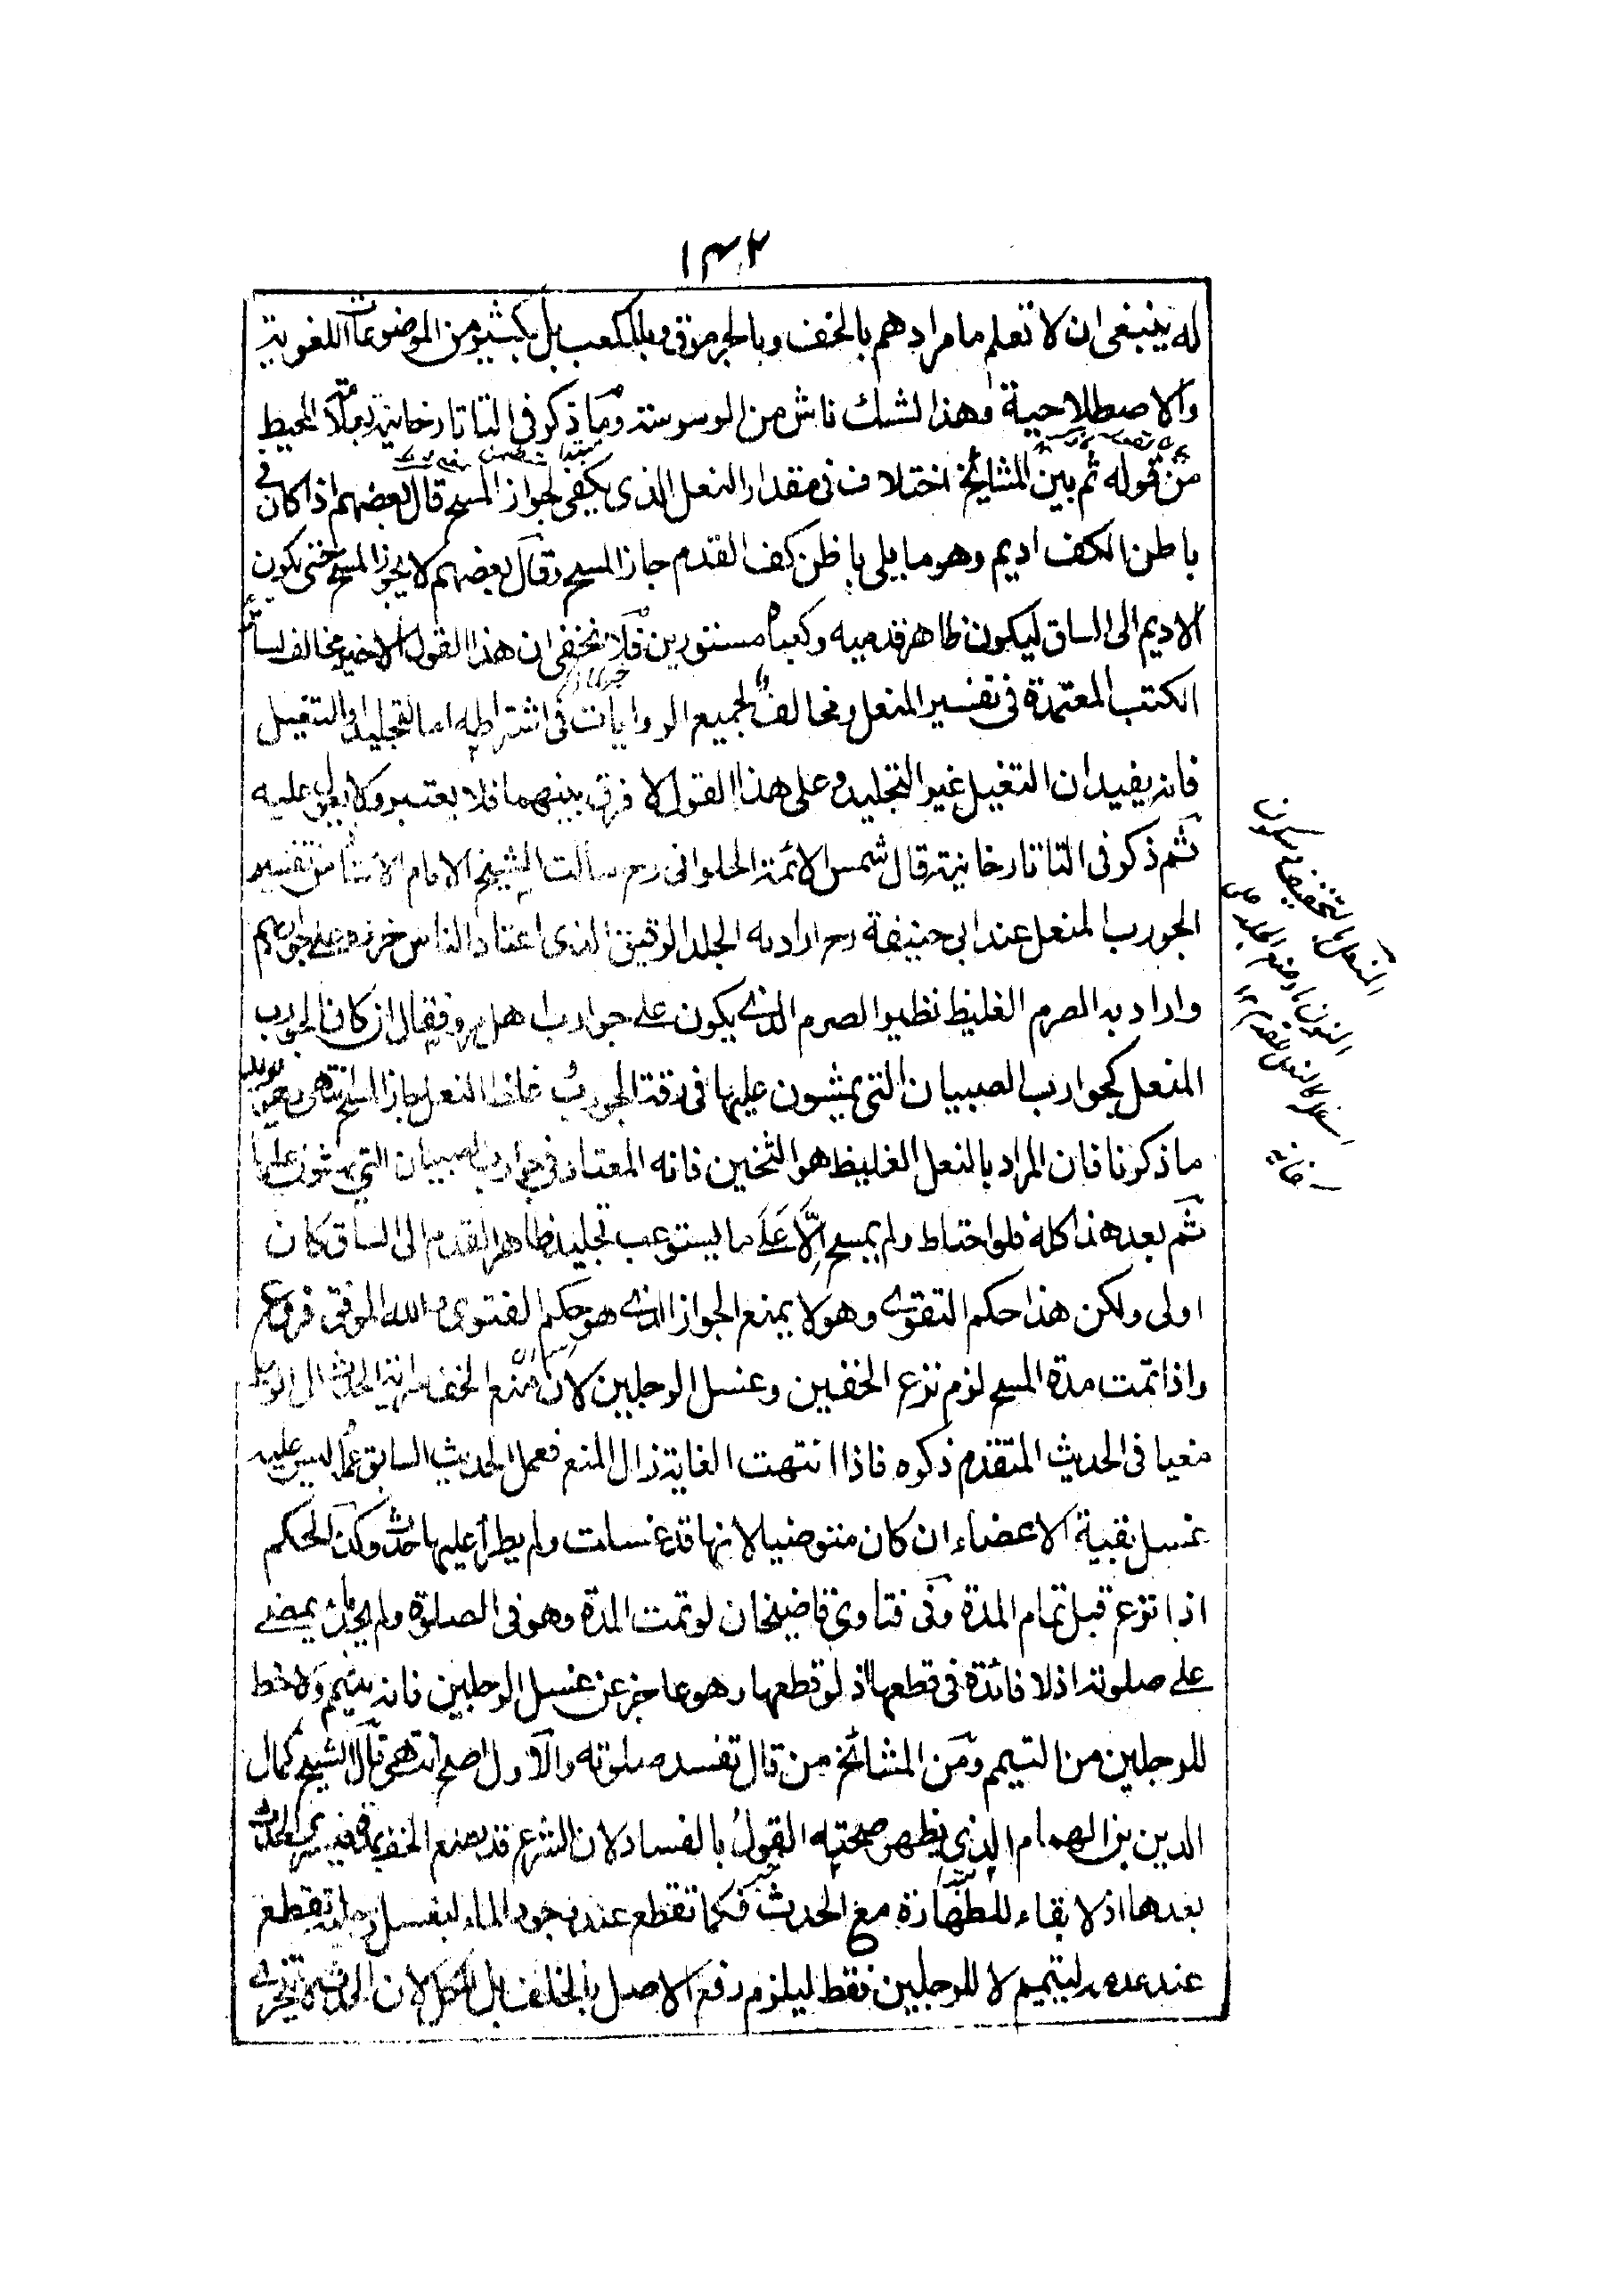 ١٣٢
له ينبغى ان لا تعلم ما مرادهم بالخف وبالجرموق وبالمكعب بل بكثير من الموضوعات اللغوية
والاصطلاحية وهذا الشك ناش من الوسوسة وما ذكر فى التاتارخانية نقلا المحيط
من قوله ثم بين المشايخ اختلاف فى مقدار النعل الذى يكفى لجواز المسح قال بعضهم اذا كان فى
باطن الكف اديم وهو ما يلى باطن كف القدم جاز المسح وقال بعضهم لا يجوز المسح حتى يكون
الاديم الى الساق ليكون ظاهر قدميه وكعباه مستورين فلا يخفى ان هذا القول الاخير مخالف لسائر
الكتب المعتمدة فى تفسير المنعل ومخالف لجميع الروايات فى اشتراطه اما التجليد او التنعيل
فانه يفيد ان التنعيل غير التجليد وعلى هذا القول لا فرق بينهما فلا يعتبر ولا يعول عليه
ثم ذكر فى التاتارخانية قال شمس الائمة الحلوانى رح سألت الشيخ الامام الاستاذ عن تفسير
الجورب المنعل عند ابى حنيفة رح اراد به الجلد الرقيق الذى اعتاد الناس خرزه على جواربهم
واراد به الصرم الغليظ نظير الصرم الذى يكون على جوارب اهل مرو فقال ان كان الجورب
المنعل كجوارب الصبيان التى يمشون عليها فى رقة الجورب غلظ النعل جاز المسح انتهى وهو يؤيد
ما ذكرنا فان المراد بالنعل الغليظ هو الثخين فانه المعتاد فى جوارب الصبيان التى يمشون عليها
ثم بعد هذا كله فلو احتاط ولم يمسح الا على ما يستوعب تجليد ظاهر القدم الى الساق كان
اولى ولكن هذا حكم التقوى وهو لا يمنع الجواز الذى هو حكم الفتوى والله الموفق فروع
واذا تمت مدة المسح لزم نزع الخفين وغسل الرجلين لان منع الخف سراية الحدث الى الرجل
مغيا فى الحديث المتقدم ذكره فاذا انتهت الغاية زال المنع فعمل الحديث السابق عمله ليس عليه
غسل بقية الاعضاء ان كان متوضيا لانها قد غسلت ولم يطرأ عليها حدث وكذا الحكم
اذا نزع قبل تمام المدة وفى فتاوى قاضيخان لو تمت المدة وهو فى الصلوة ولم يجد ماء يمضى
على صلوته اذ لا فائدة فى قطعها اذ لو قطعها وهو عاجز عن غسل الرجلين فانه يتيمم ولا حظ
للرجلين من التيمم ومن المشائخ من قال تفسد صلوته والاول اصح انتهى قال الشيخ كمال
الدين بن الهمام الذى يظهر صحته القول بالفساد لان الشرع قدر منع الخف بمدة فيسرى الحدث
بعدها اذ لا بقاء للطهارة مع الحدث فكما تقطع عند وجود الماء ليغسل رجليه تقطع
عند عدمه ليتيمم لا للرجلين فقط ليلزم رفع الاصل بالخلف بل للكل لان الحدث لا يتجزى